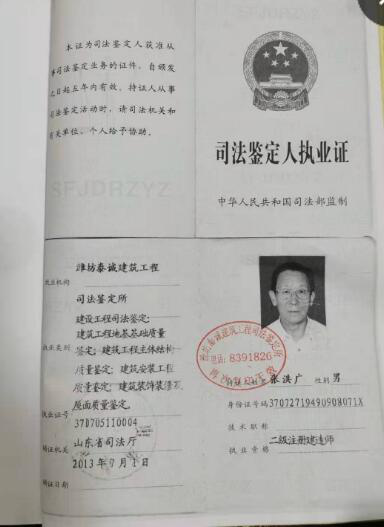 本证为司法鉴定人获准从
事司法鉴定业务的证件，自颁发
之日起五年内有效。持证人从事
司法鉴定活动时，请司法机关和
有关单位、个人给予协助。
SFJDRZYZ
司法鉴定人执业证
中华人民共和国司法部监制
潍坊泰诚建筑工程
执业机构
司法鉴定所
建设工程司法鉴定;
建筑工程地基基础质量
执业类别 鉴定;建筑工程主体结构
质量鉴定;建筑安装工程
质量鉴定;建筑装饰装修及
屋面质量鉴定.
执业证号
370705110004
颁证机关 山东省司法厅
2013年7月1日
颁证日期
电话: 8391826
张洪广 性别 男
身份证号码 37072719490908071X
技术职称
二级注册建造师
执业资格